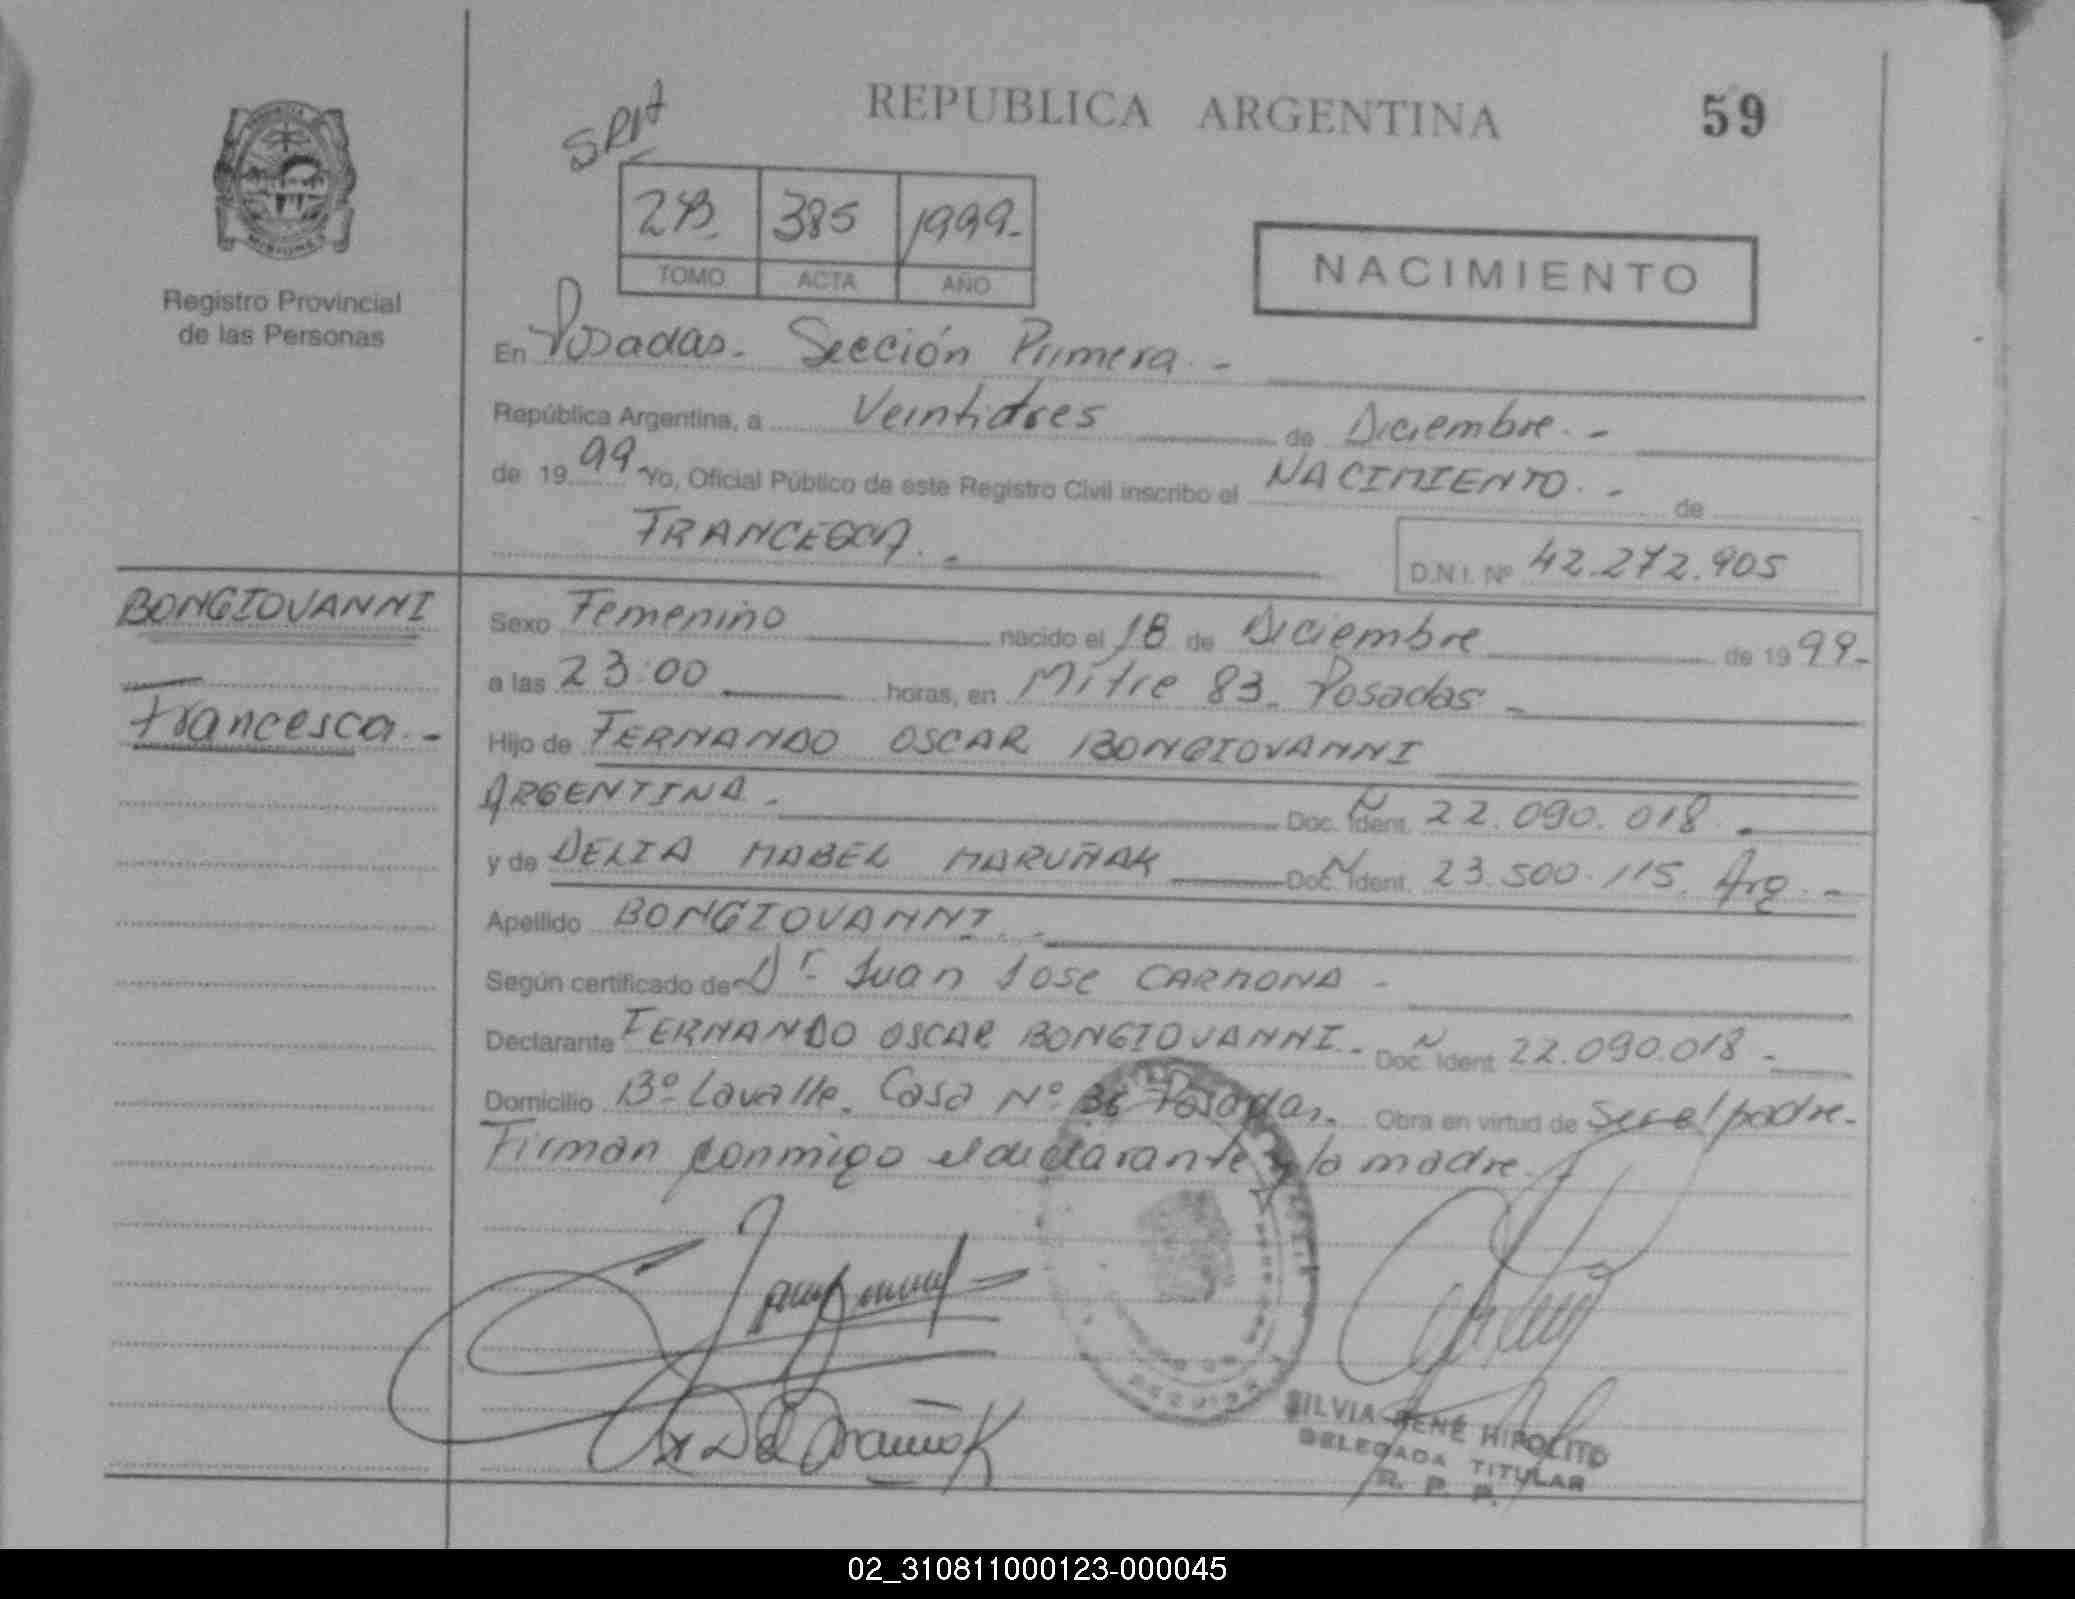 REPUBLICA ARGENTINA
59
385 1999.
TOMO ACTA AÑO
NACIMIENTO
MISIONES
Registro Provincial
de las Personas
En Posadas. Sección Primera. -
República Argentina, a Veintidres de Diciembre. -
de 1999 Yo, Oficial Público de este Registro Civil inscribo el NACIMIENTO. - de
FRANCESCA. -
D.N.I. Nº 42.272.905
BONGIOVANNI
Francesca. -
Sexo Femenino nacido el 18 de Diciembre de 1999-
a las 23:00 horas, en Mitre 83. Posadas -
Hijo de FERNANDO OSCAR BONGIOVANNI
ARGENTINA. Doc. Ident. 22.090.018. -
y de DELIA MABEL MARUÑAK Doc. Ident. 23.500.115. Arg. -
Apellido BONGIOVANNI. -
Según certificado de Dr. Juan Jose CARMONA -
Declarante FERNANDO OSCAR BONGIOVANNI. - Doc. Ident. 22.090.018 -
Domicilio Bº Lavalle. Casa Nº 36 Posadas. Obra en virtud de Ser el padre.
Firman conmigo el declarante y la madre.
SILVIA RENÉ HIPOLITO
DELEGADA TITULAR
R. P. P.
02_310811000123-000045